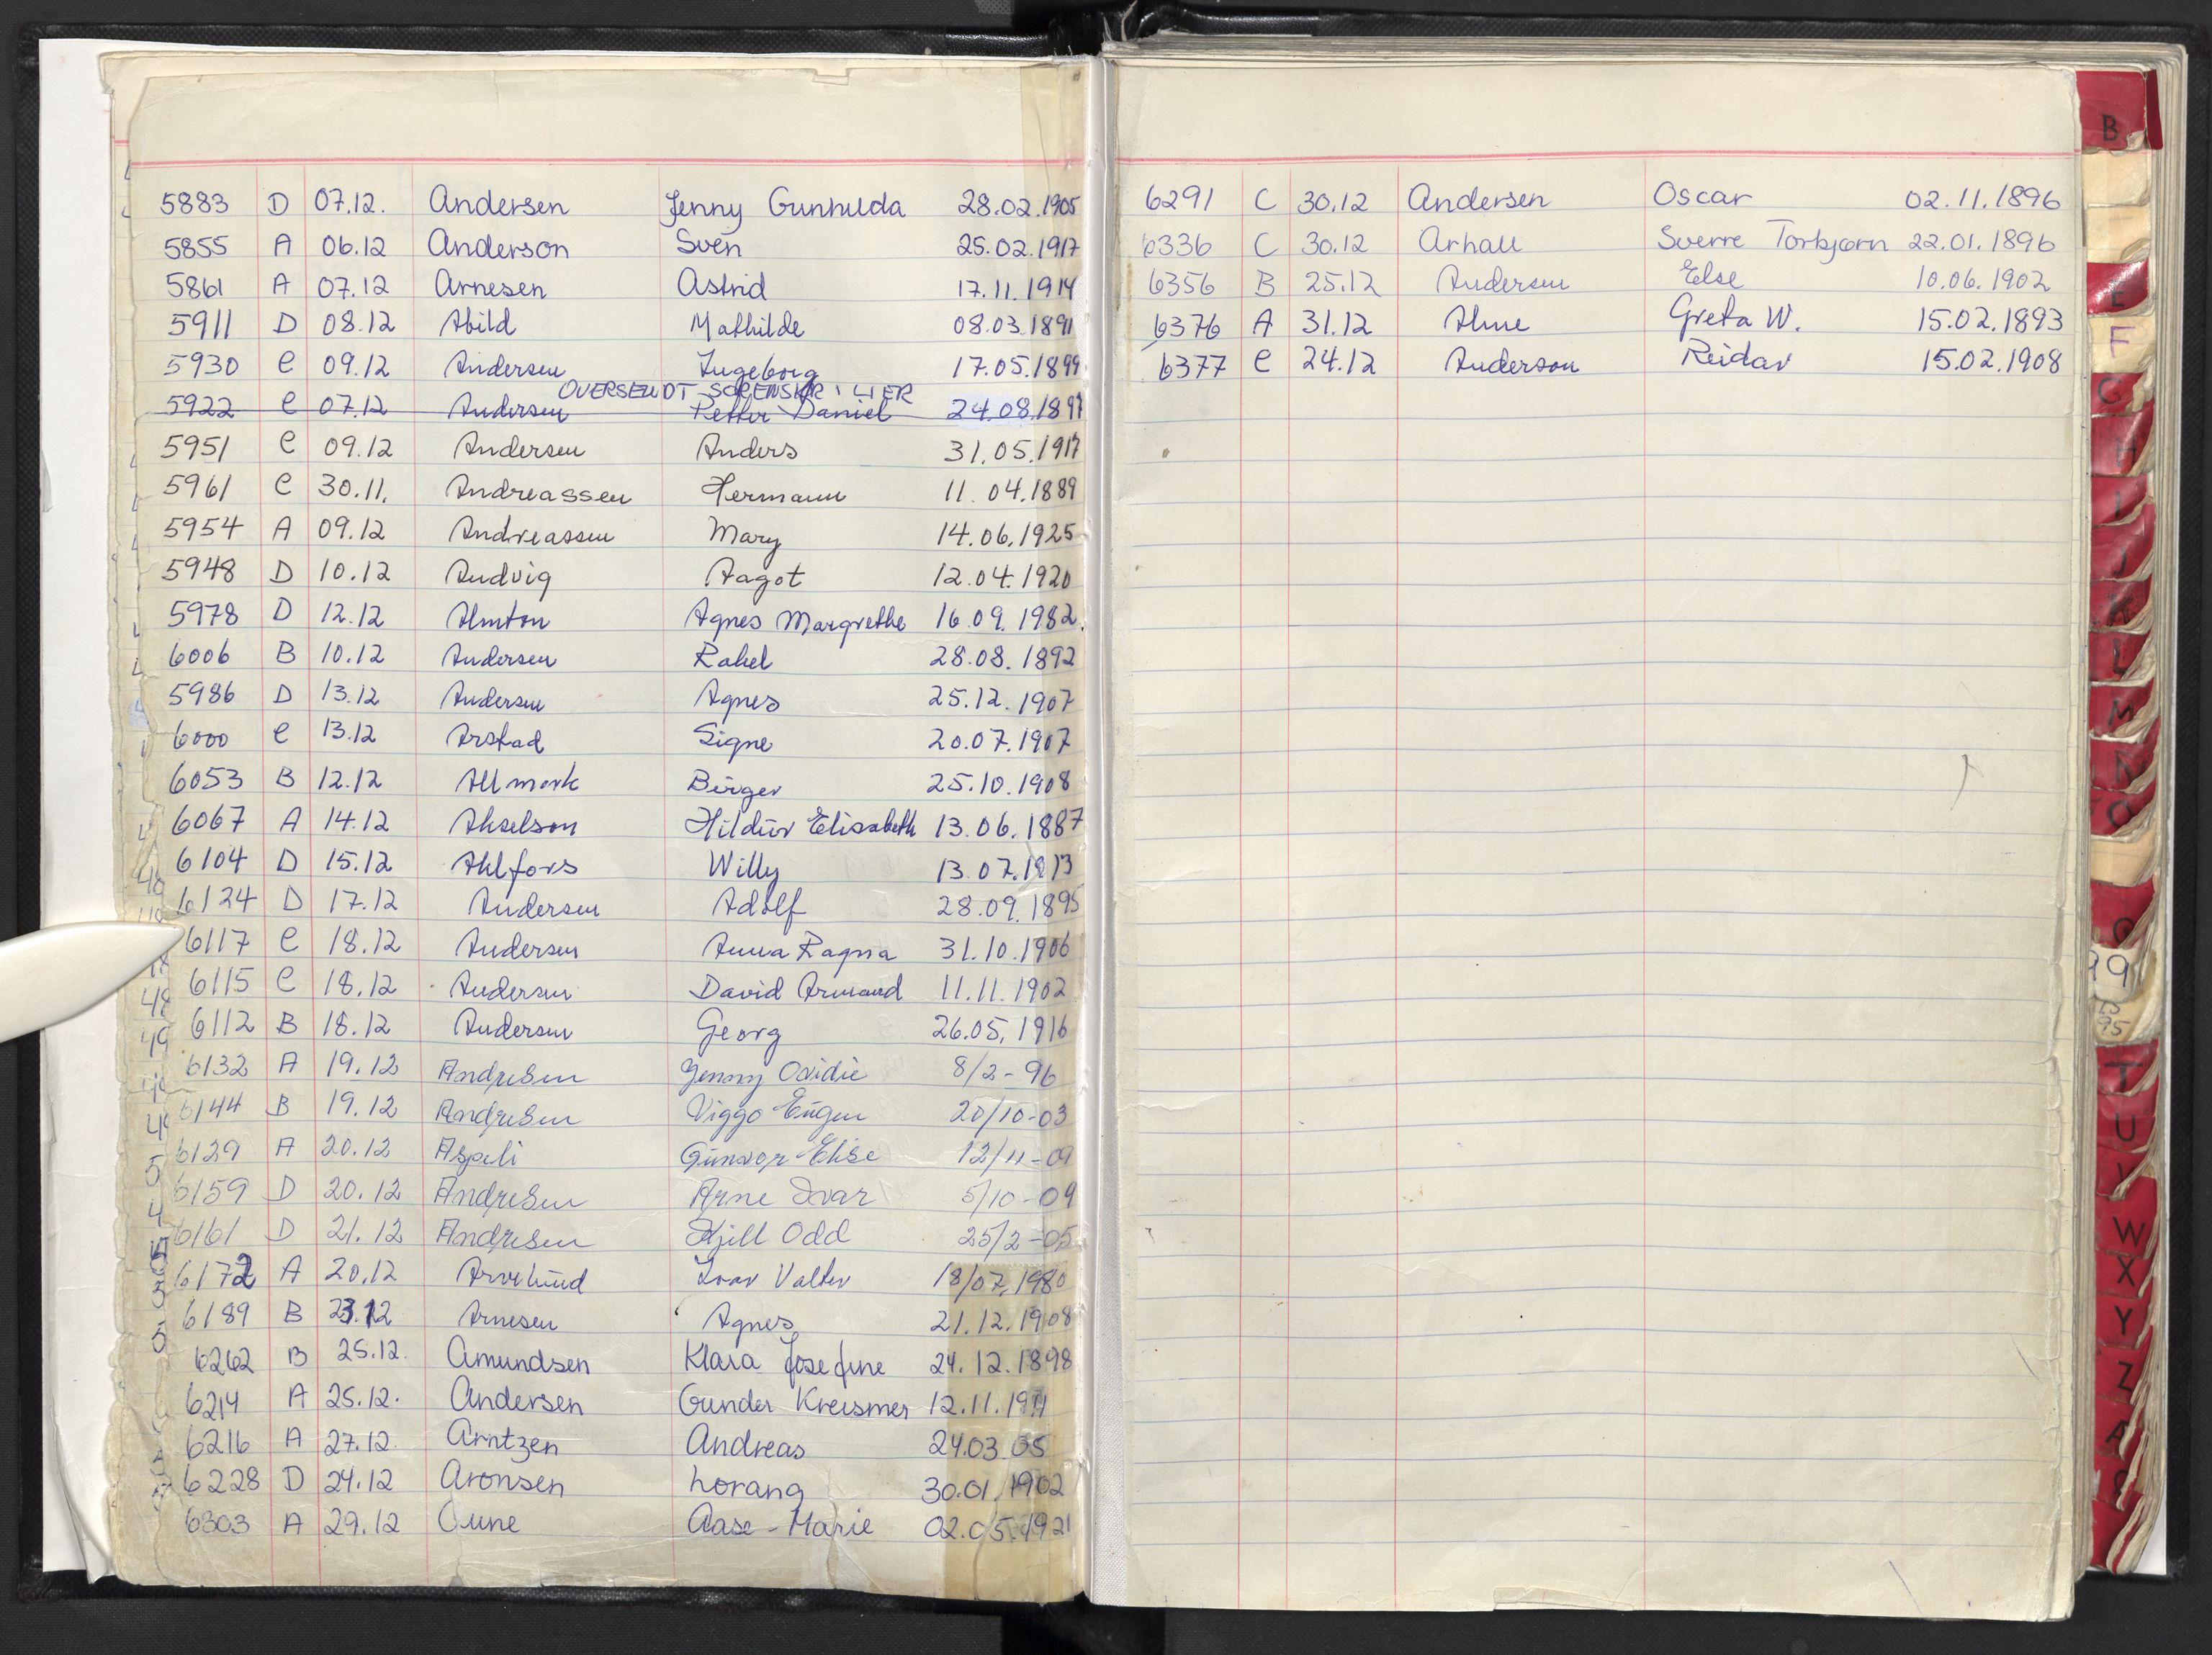 5883 D 07.12. Andersen Jenny Gunhilda 28.02.1905
5855 A 06.12 Anderson Sven 25.02.1917
5861 A 07.12 Arnesen Astrid 17.11.1914
5911 D 08.12 Abild Mathilde 08.03.1891
5930 C 09.12 Andersen Ingeborg 17.05.1899
OVERSENDT SORENSKR i LIER
5922 C 07.12 Andersen Petter Daniel 24.08.1897
5951 C 09.12 Andersen Anders 31.05.1917
5961 C 30.11. Andreassen Hermann 11.04.1889
5954 A 09.12 Andreassen Mary 14.06.1925
5948 D 10.12 Andvig Aagot 12.04.1920
5978 D 12.12 Almton Agnes Margrethe 16.09.1982.
6006 B 10.12 Andersen Rakel 28.08.1892
5986 D 13.12 Andersen Agnes 25.12.1907
6000 C 13.12 Arstad Signe 20.07.1907
6053 B 12.12 Allmork Birger 25.10.1908
6067 A 14.12 Akselson Hildur Elisabeth 13.06.1887
6104 D 15.12 Ahlfors Willy 13.07.1913
6124 D 17.12 Andersen Adolf 28.09.1895
6117 C 18.12 Andersen Anna Ragna 31.10.1906
6115 C 18.12 Andersen David Armand 11.11.1902
6112 B 18.12 Andersen Georg 26.05.1916
6132 A 19.12 Andresen Jenny Ovidie 8/2-96
6144 B 19.12 Andresen Viggo Eugen 20/10-03
6129 A 20.12 Aspeli Gunvor Elise 12/11-09
6159 D 20.12 Andresen Arne Ivar 5/10-09
6161 D 21.12 Andresen Kjell Odd 25/2-05
6172 A 20.12 Arvelund Ivar Valter 18/07.1980
6189 B 23.12 Arnesen Agnes 21.12.1908
6262 B 25.12. Amundsen Klara Josefine 24.12.1898
6214 A 25.12. Andersen Gunder Kreismer 12.11.1911
6216 A 27.12. Arntzen Andreas 24.03.05
6228 D 24.12 Aronsen Lorang 30.01.1902
6303 A 29.12 Aune Aase-Marie 02.05.1921
6291 C 30.12 Andersen Oscar 02.11.1896
6336 C 30.12 Arhall Sverre Torbjørn 22.01.1896
6356 B 25.12 Andersen Else 10.06.1902
6376 A 31.12 Alme Greta W. 15.02.1893
6377 C 24.12 Anderson Reidar 15.02.1908
B
E
F
G
H
I
J
K
L
M
N
O
T
U
V
W
X
Y
Z